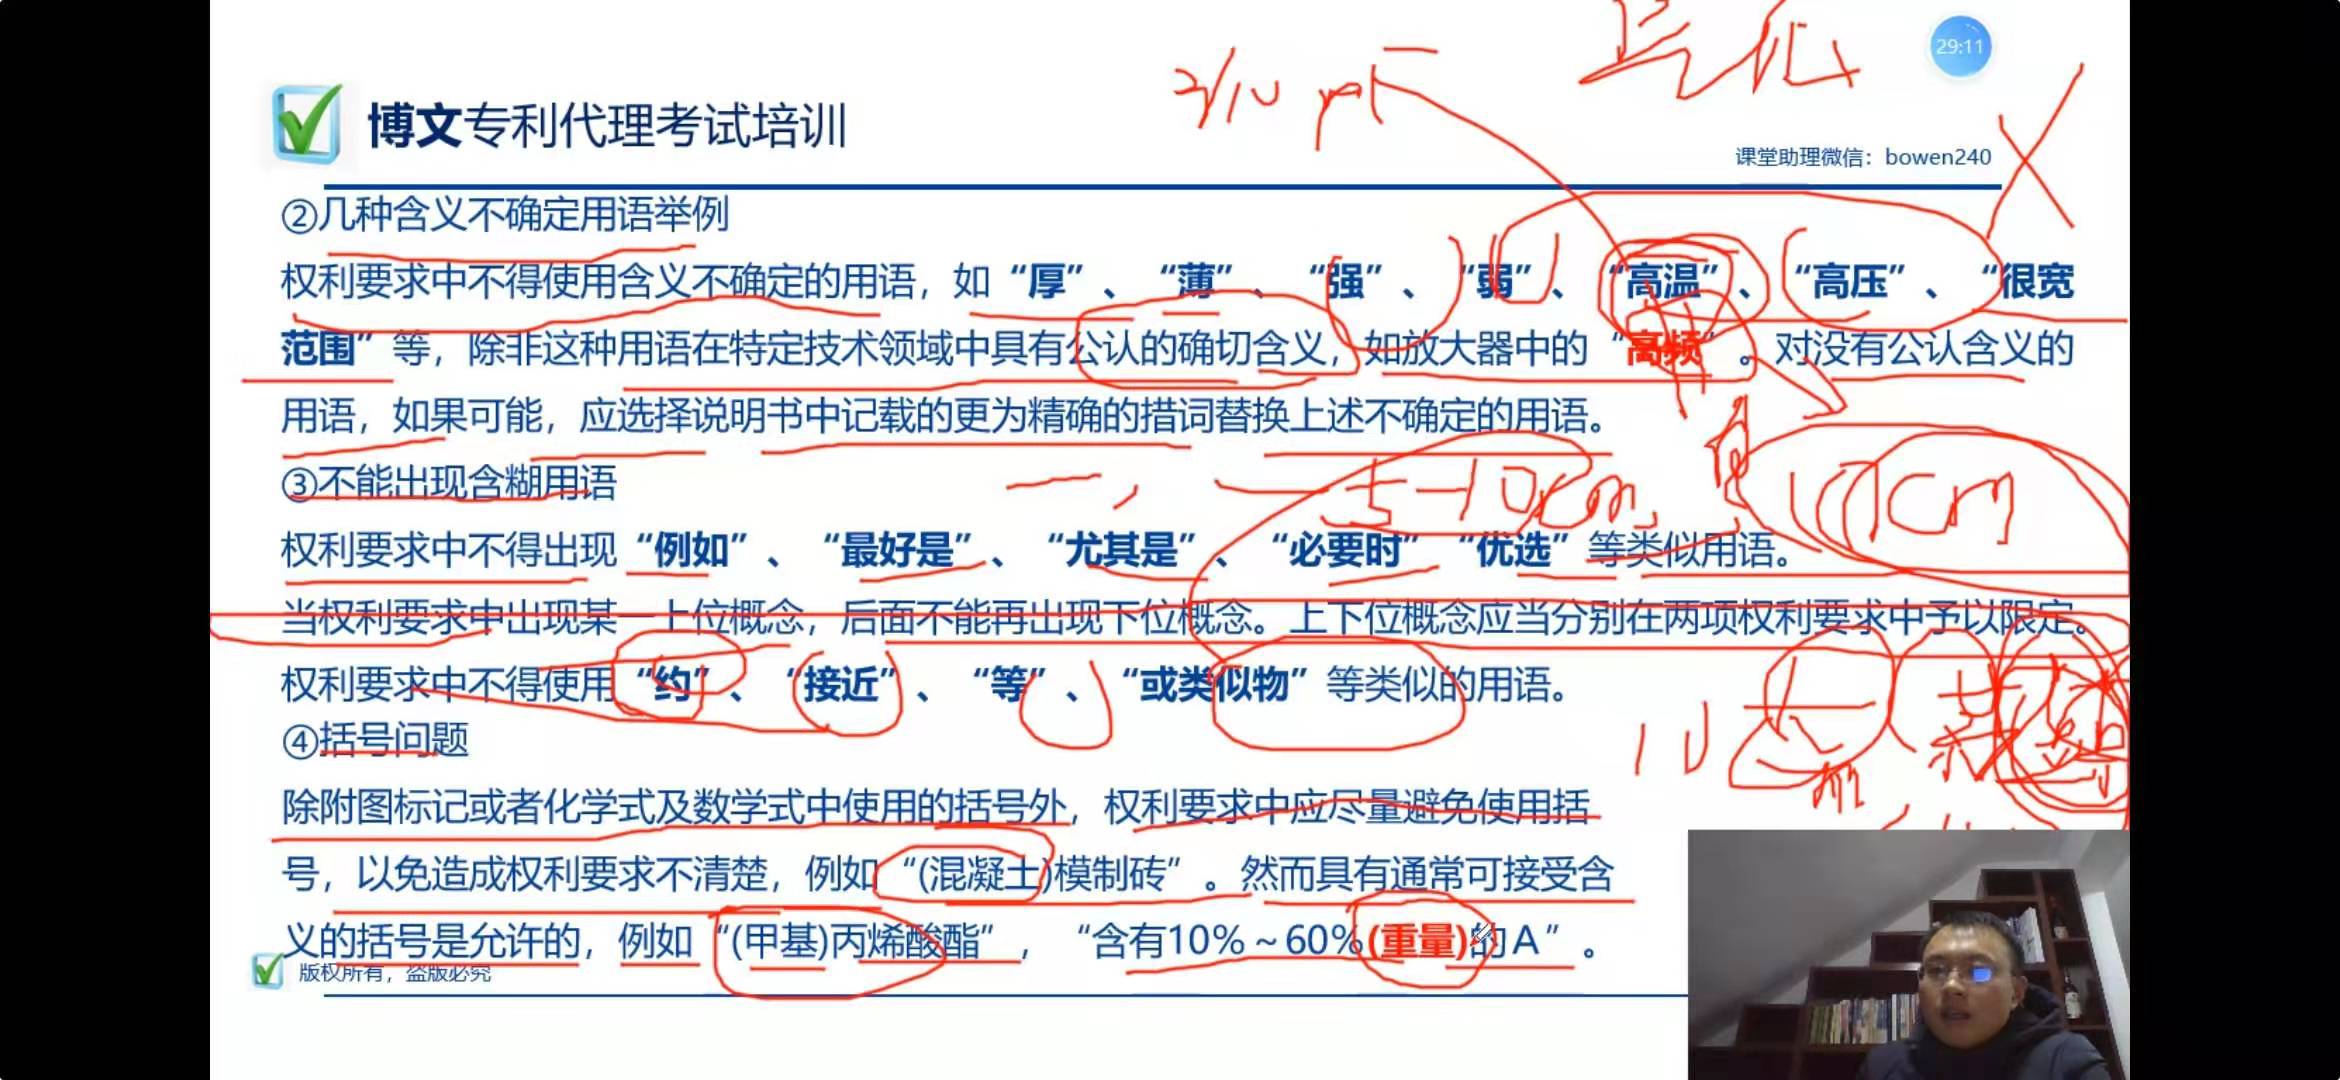 29:11
博文专利代理考试培训
课堂助理微信：bowen240
②几种含义不确定用语举例
权利要求中不得使用含义不确定的用语，如“厚”、“薄”、“强”、“弱”、“高温”、“高压”、“很宽
范围”等，除非这种用语在特定技术领域中具有公认的确切含义，如放大器中的“高频”。对没有公认含义的
用语，如果可能，应选择说明书中记载的更为精确的措词替换上述不确定的用语。
③不能出现含糊用语
5-10cm,
10cm
权利要求中不得出现“例如”、“最好是”、“尤其是”、“必要时”“优选”等类似用语。
当权利要求中出现某一上位概念，后面不能再出现下位概念。上下位概念应当分别在两项权利要求中予以限定。
权利要求中不得使用“约”、“接近”、“等”、“或类似物”等类似的用语。
④括号问题
除附图标记或者化学式及数学式中使用的括号外，权利要求中应尽量避免使用括
号，以免造成权利要求不清楚，例如“(混凝土)模制砖”。然而具有通常可接受含
义的括号是允许的，例如“(甲基)丙烯酸酯”，“含有10%～60%(重量)的A”。
版权所有，盗版必究